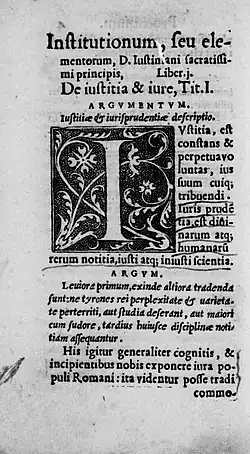 Institutionum, seu ele-
mentorum, D. Iustiniani sacratissi
mi principis, Liber.j.
De iustitia & iure, Tit.I.
ARGVMENTVM.
Iustitiæ & iurisprudentiæ descriptio.
IVstitia, est
constans &
perpetua vo
luntas, ius
suum cuiq;
tribuendi.
Iuris prudē
tia, est diui
narum atq;
humanarū
rerum notitia, iusti atq; iniusti scientia.
ARGVM.
Leuiora primum, exinde altiora tradenda
sunt: ne tyrones rei perplexitate & uarieta
te perterriti, aut studia deserant, aut maiori
cum sudore, tardius huiusce disciplinæ noti
tiam assequantur.
His igitur generaliter cognitis, &
incipientibus nobis exponere iura po
puli Romani: ita videntur posse tradi
commo-